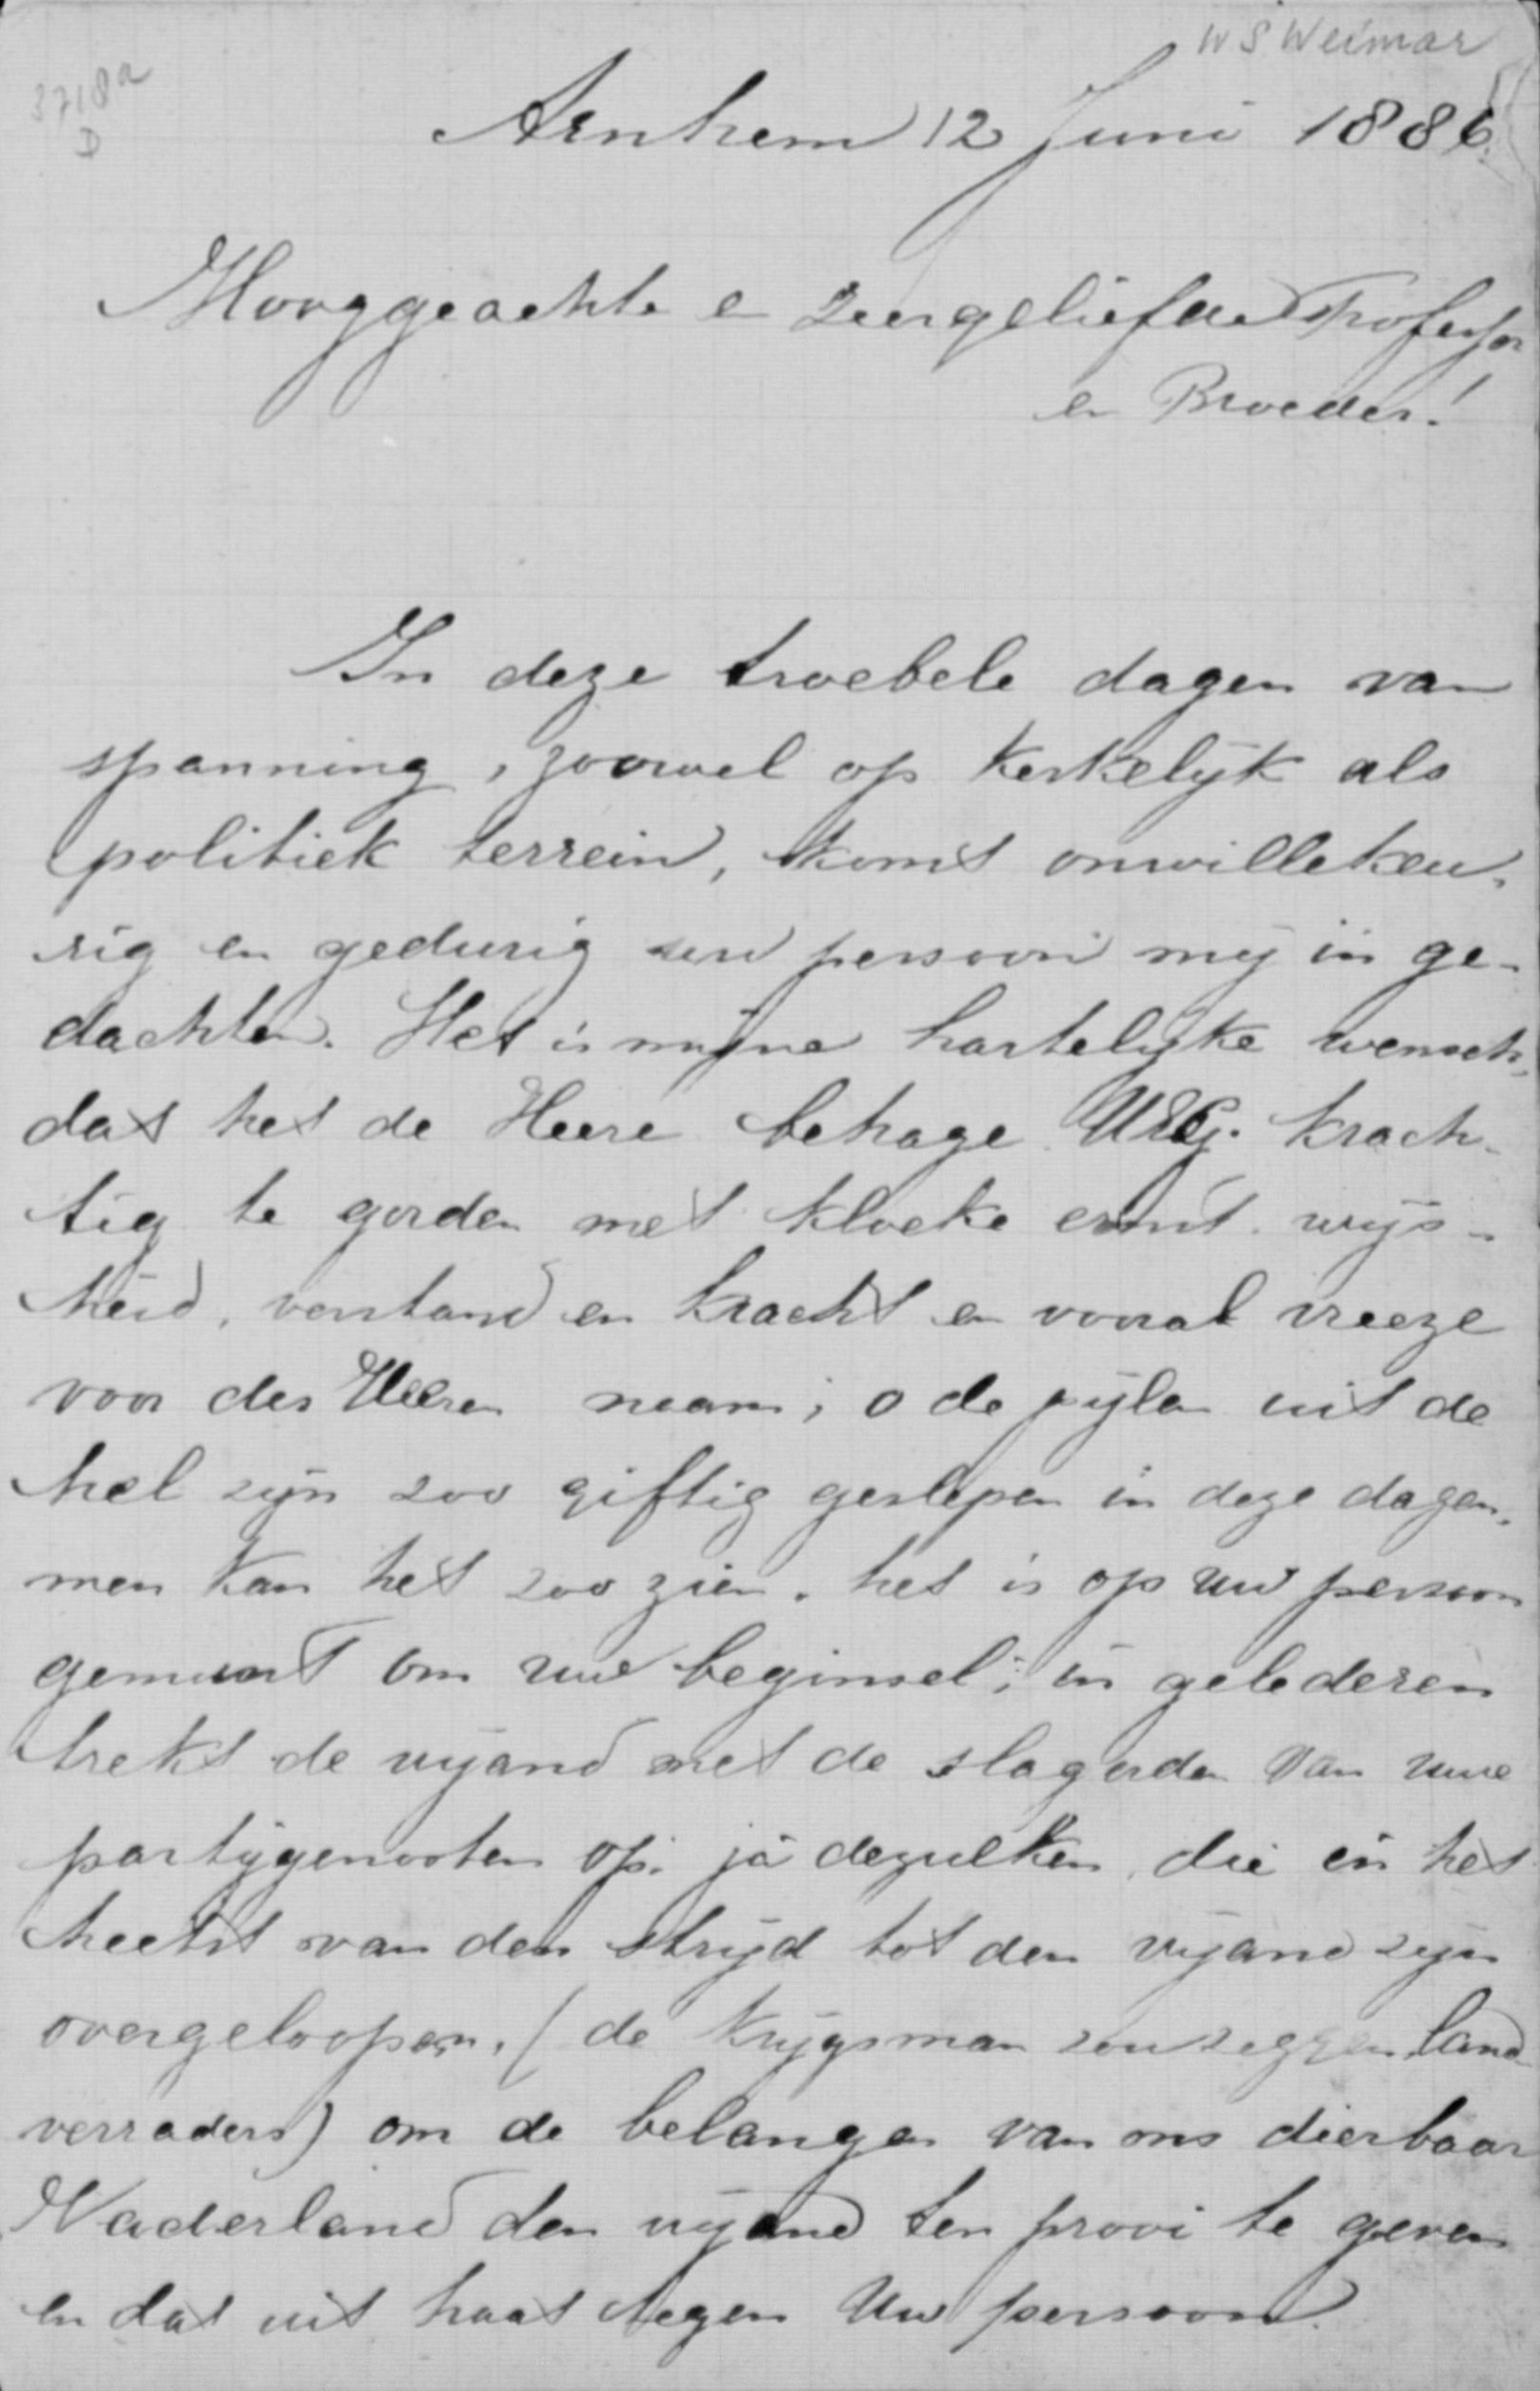 W S Weimar
3718a
D
Arnhem 12 Juni 1886.
Hooggeachte en Zeergeliefde Professor
en Broeder!
In deze troebele dagen van
spanning, zoowel op kerkelijk als
politiek terrein, komt onwillekeu-
rig en gedurig uw persoon mij in ge-
dachten. Het is mijne hartelijke wensch,
dat het de Heere behage UEG. krach-
tig te gorden met kloeke ernst wijs-
heid, verstand en kracht en vooral vreeze
voor des Heeren naam; o de pijlen uit de
hel zijn zoo giftig geslepen in deze dagen,
men kan het zoo zien, het is op uw persoon
gemunt om uw beginsel; in gelederen
trekt de vijand met de slagorden van uwe
partijgenooten op. ja dezulken, die in het
heetst van den strijd tot den vijand zijn
overgeloopen, (de krijgsman zou zeggen land
verraders) om de belangen van ons dierbaar
Vaderland den vijand ten prooi te geven
en dat uit haat tegen Uw persoon.